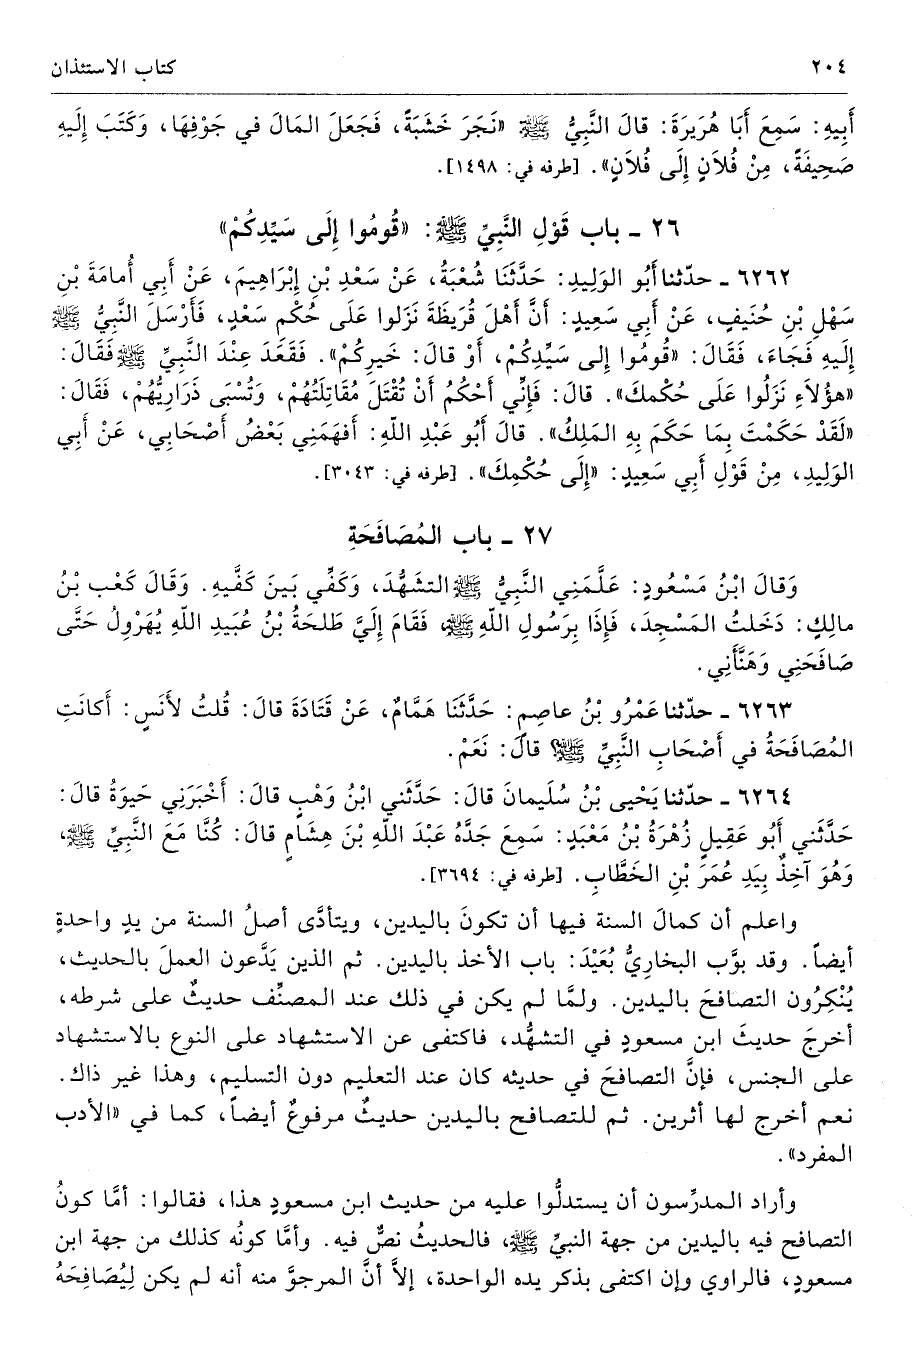 ٢٠٤ كتاب الاستئذان
أَبِيهِ: سَمِعَ أَبَا هُرَيرَةَ: قالَ النَّبِيُّ ﷺ «نَجَرَ خَشَبَةً، فَجَعَلَ المَالَ في جَوْفِهَا، وَكَتَبَ إِلَيهِ
صَحِيفَةً، مِنْ فُلاَنٍ إِلَى فُلاَنٍ». [طرفه في: ١٤٩٨].
٢٦ - باب قَوْلِ النَّبِيِّ ﷺ: «قُومُوا إِلَى سَيِّدِكُمْ»
٦٢٦٢ - حدّثنا أَبُو الوَلِيدِ: حَدَّثَنَا شُعْبَةُ، عَنْ سَعْدِ بْنِ إِبْرَاهِيمَ، عَنْ أَبِي أُمامَةَ بْنِ
سَهْلِ بْنِ حُنَيفٍ، عَنْ أَبِي سَعِيدٍ: أَنَّ أَهْلَ قُرَيظَةَ نَزَلوا عَلَى حُكْمِ سَعْدٍ، فَأَرْسَلَ النَّبِيُّ ﷺ
إِلَيهِ فَجَاءَ، فَقَالَ: «قُومُوا إِلى سَيِّدِكُمْ، أَوْ قالَ: خَيرِكُمْ». فَقَعَدَ عِنْدَ النَّبِيِّ ﷺ فَقَالَ:
«هؤُلاَءِ نَزَلُوا عَلَى حُكْمكَ». قالَ: فَإِنِّي أَحْكُمُ أَنْ تُقْتَلَ مُقَاتِلَتُهُمْ، وَتُسْبَى ذَرَارِيُّهُمْ، فَقَالَ:
«لَقَدْ حَكَمْتَ بِمَا حَكَمَ بِهِ المَلِكُ». قالَ أَبُو عَبْدِ اللّهِ: أَفهَمَنِي بَعْضُ أَصْحَابِي، عَنْ أَبِي
الوَلِيدِ، مِنْ قَوْلِ أَبِي سَعِيدٍ: «إِلَى حُكْمِكَ». [طرفه في: ٣٠٤٣].
٢٧ - باب المُصَافَحَةِ
وَقالَ ابْنُ مَسْعُودٍ: عَلَّمَنِي النَّبِيُّ ﷺ التشَهُّدَ، وَكَفِّي بَينَ كَفَّيهِ. وَقَالَ كَعْب بْنُ
مالِكٍ: دَخَلتُ المَسْجِدَ، فَإِذَا بِرَسُولِ اللّهِ ﷺ، فَقَامَ إِلَيَّ طَلحَةُ بْنُ عُبَيدِ اللّهِ يُهَرْوِلُ حَتَّى
صَافَحَنِي وَهَنَّأَنِي.
٦٢٦٣ - حدّثنا عَمْرُو بْنُ عاصِمٍ: حَدَّثَنَا هَمَّامٌ، عَنْ قَتَادَةَ قالَ: قُلتُ لأَنَسٍ: أَكانَتِ
المُصَافَحَةُ في أَصْحَابِ النَّبِيِّ ﷺ؟ قالَ: نَعَمْ.
٦٢٦٤ - حدّثنا يَحْيى بْنُ سُلَيمانَ قالَ: حَدَّثَنِي ابْنُ وَهْبٍ قالَ: أَخْبَرَنِي حَيوَةُ قالَ:
حَدَّثَنِي أَبُو عَقِيلٍ زُهْرَةُ بْنُ مَعْبَدٍ: سَمِعَ جَدَّهُ عَبْدَ اللّهِ بْنَ هِشَامٍ قالَ: كُنَّا مَعَ النَّبِيِّ ﷺ،
وَهُوَ آخِذٌ بِيَدِ عُمَرَ بْنِ الخَطَّابِ. [طرفه في: ٣٦٩٤].
واعلم أن كمالَ السنة فيها أن تكونَ باليدين، ويتأدَّى أصلُ السنة من يدٍ واحدةٍ
أيضاً. وقد بوَّب البخاريُّ بُعَيْدَ: باب الأخذ باليدين. ثم الذين يَدَّعون العملَ بالحديث،
يُنْكِرُون التصافحَ باليدين. ولمَّا لم يكن في ذلك عند المصنِّف حديثٌ على شرطه،
أخرجَ حديثَ ابن مسعودٍ في التشهُّد، فاكتفى عن الاستشهاد على النوع بالاستشهاد
على الجنس، فإنَّ التصافحَ في حديثه كان عند التعليم دون التسليم، وهذا غير ذاك.
نعم أخرج لها أثرين. ثم للتصافح باليدين حديثٌ مرفوعٌ أيضاً، كما في «الأدب
المفرد».
وأراد المدرِّسون أن يستدلُّوا عليه من حديث ابن مسعودٍ هذا، فقالوا: أمَّا كونُ
التصافح فيه باليدين من جهة النبيِّ ﷺ، فالحديثُ نصٌّ فيه. وأمَّا كونُه كذلك من جهة ابن
مسعودٍ، فالراوي وإن اكتفى بذكر يده الواحدة، إلاَّ أنَّ المرجوَّ منه أنه لم يكن لِيُصَافِحَهُ